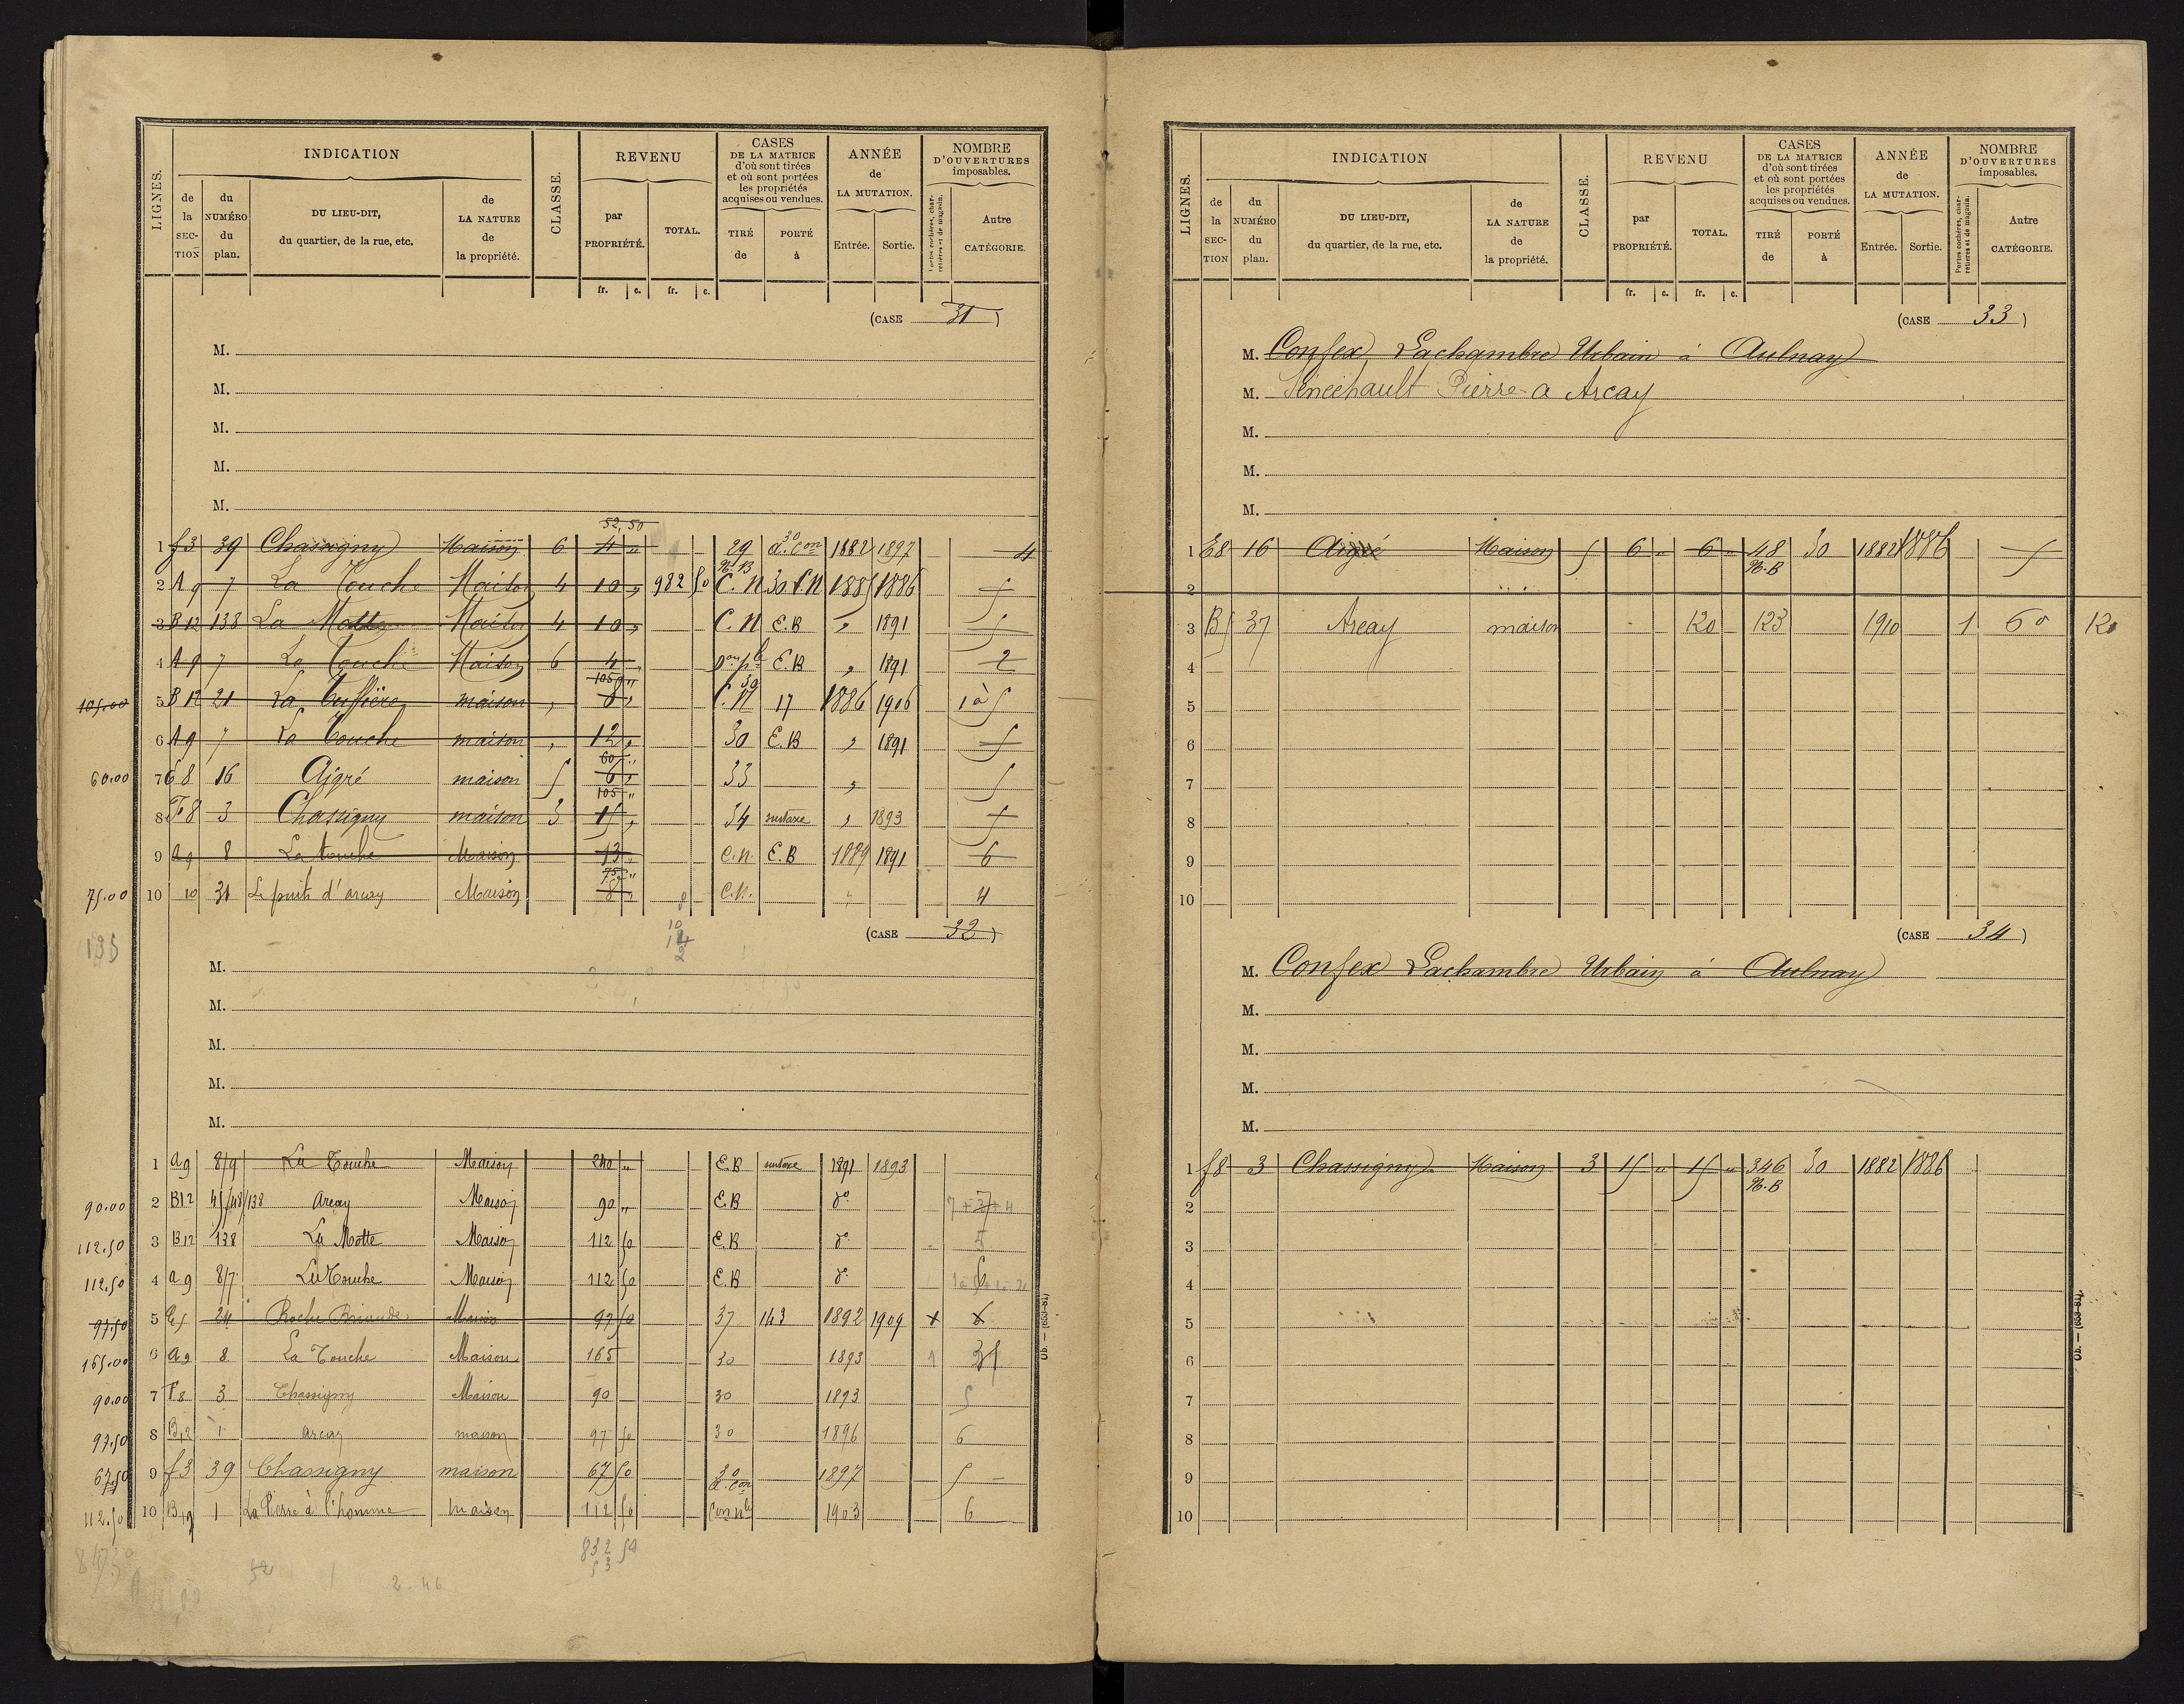 LIGNES.
INDICATION
de la SECTION
du NUMÉRO du plan.
DU LIEU-DIT, du quartier, de la rue, etc.
de LA NATURE de la propriété.
CLASSE.
REVENU
par PROPRIÉTÉ.
TOTAL.
fr. c. fr. c.
CASES DE LA MATRICE d'où sont tirées et où sont portées les propriétés acquises ou vendues.
TIRÉ de
PORTÉ à
ANNÉE de LA MUTATION.
Entrée. Sortie.
NOMBRE D'OUVERTURES imposables.
Portes cochères, charretières et de magasin.
Autre CATÉGORIE.
(CASE 31)
M.
M.
M.
M.
M.
52,50
1 f3 39 Chassigny Maison 6 4 „ 29 30 d.con 1882 1897 4
N.B
2 A9 7 La Touche Maison 4 10 „ 982 50 C.N 30.C.N 1885 1886 5
3 B12 138 La Motte Maison 4 10 „ C.N E.B „ 1891 5
4 A9 7 La Touche Maison 6 4 E.B „ 1891 2
105 „
105.00 5 B12 21 maison , 8 „ C.N 17 1886 1906 1 à 5
6 A9 7 La Touche maison , 12 „ 30 E.B „ 1891 5
60 „
60.00 7 E8 16 Aigré maison 5 6 „ 33 „ 5
105 „
8 F8 3 Chassigny maison 3 15 „ 34 surtaxe „ 1893 5
9 A9 8 La touche Maison 13 „ C.N. E.B 1889 1891 6
75 „
75.00 10 10 31 Le puits d'arcay Maison 8 „ C.N. „ 4
135
(CASE 32)
M.
M.
M.
M.
M.
1 A9 8/9 La Touche Maison 240 „ E.B surtaxe 1891 1893
90.00 2 B12 45/48/138 Arcay Maison 90 „ E.B do
112.50 3 B12 138 La Motte Maison 112 50 E.B do 5
112.50 4 A9 8/7 La Touche Maison 112 50 E.B do
97.50 5 E5 24 Roche Maison 97 50 37 143 1892 1909
165.00 6 A9 8 La Touche Maison 165 30 1893 1
90.00 7 F8 3 Chassigny Maison 90 30 1893 5
97.50 8 B12 1 Arcay maison 97 50 30 1896 6
67.50 9 f3 39 Chassigny maison 67 50 30 d.con 1897 5
112.50 10 B12 1 La Pierre à l'homme maison 112 50 Con nle 1903 6
832 50
53
2-46
LIGNES.
INDICATION
de la SECTION
du NUMÉRO du plan.
DU LIEU-DIT, du quartier, de la rue, etc.
de LA NATURE de la propriété.
CLASSE.
REVENU
par PROPRIÉTÉ.
TOTAL.
fr. c. fr. c.
CASES DE LA MATRICE d'où sont tirées et où sont portées les propriétés acquises ou vendues.
TIRÉ de
PORTÉ à
ANNÉE de LA MUTATION.
Entrée. Sortie.
NOMBRE D'OUVERTURES imposables.
Portes cochères, charretières et de magasin.
Autre CATÉGORIE.
(CASE 33)
M. Confex Lachambre Urbain à Aulnay
M. Sénéchault Pierre a Arcay
M.
M.
M.
1 E8 16 Aigré Maison 5 6 „ 6 „ 48 30 1882 1886 5
N.B
2
3 B5 37 Arcay maison 120 123 1910 1 60 120
4
5
6
7
8
9
10
(CASE 34)
M. Confex Lachambre Urbain à Aulnay
M.
M.
M.
M.
1 f8 3 Chassigny Maison 3 15 „ 15 „ 346 30 1882 1886
N.B
2
3
4
5
6
7
8
9
10
Ob. — (653-81).
Ob. — (653-81).